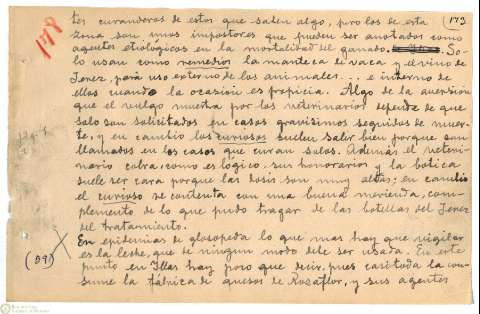 178
(173
tes curanderos de estos que saben algo, pero los de esta
zona son unos impostores que pueden ser anotados como
agentes etiológicos en la mortalidad del ganado. So-
lo usan como remedios la manteca de vaca y el vino de
Jerez, para uso externo de los animales... e interno de
ellos cuando la ocasión es propicia. Algo de la aversión
que el vulgo muestra por los veterinarios depende de que
solo son solicitados en casos gravísimos seguidos de muer-
te, y en cambio los curiosos suelen salir bien porque son
llamados en los casos que curan solos. Además el veteri-
nario cobra como es lógico sus honorarios y la botica
suele ser cara porque las dosis son muy altas; en cambio
el curioso se contenta con una buena merienda, com-
plemento de lo que pudo tragar de las botellas del Jerez
del tratamiento.
En epidemias de glosopeda lo que mas hay que vigilar
(D9) es la leche, que de ningun modo debe ser usada. En este
punto en Illas hay poco que decir, pues casi toda la con-
sume la fábrica de quesos de Rosaflor, y sus agentes